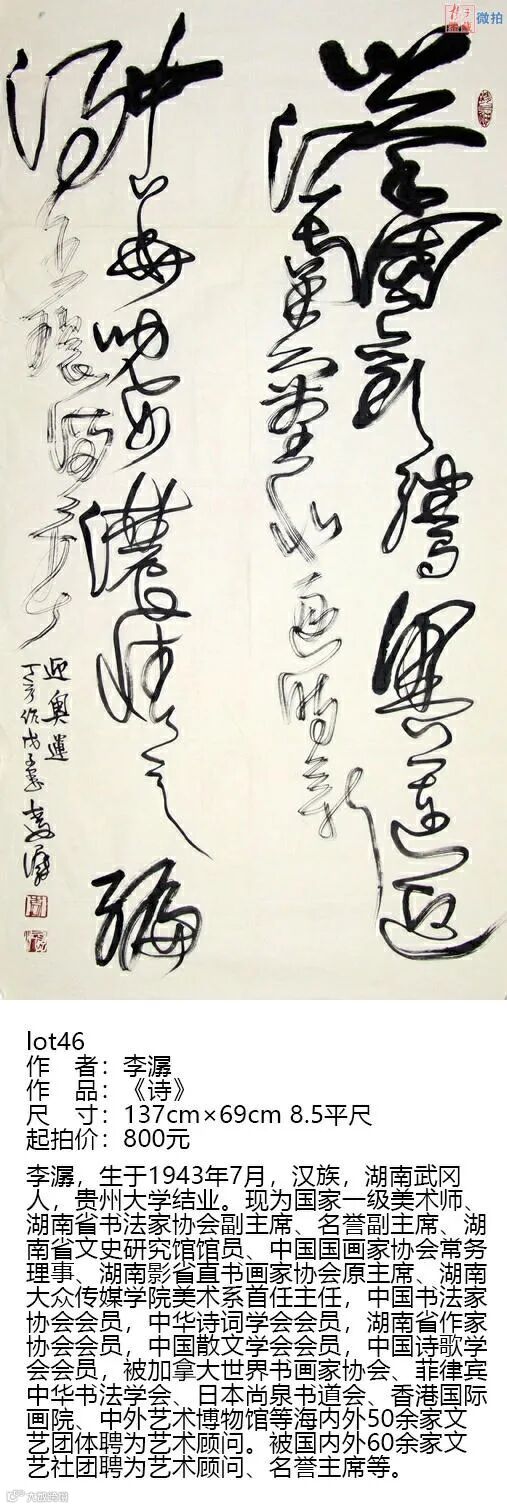 微拍
举国欢腾
中华
浓情
五环
迎奥运
丁亥作戊子
李潺
lot46
作 者：李潺
作 品：《诗》
尺 寸：137cm×69cm 8.5平尺
起拍价：800元
李潺，生于1943年7月，汉族，湖南武冈
人，贵州大学结业。现为国家一级美术师、
湖南省书法家协会副主席、名誉副主席、湖
南省文史研究馆馆员、中国国画家协会常务
理事、湖南影省直书画家协会原主席、湖南
大众传媒学院美术系首任主任，中国书法家
协会会员，中华诗词学会会员，湖南省作家
协会会员，中国散文学会会员，中国诗歌学
会会员，被加拿大世界书画家协会、菲律宾
中华书法学会、日本尚泉书道会、香港国际
画院、中外艺术博物馆等海内外50余家文
艺团体聘为艺术顾问。被国内外60余家文
艺社团聘为艺术顾问、名誉主席等。